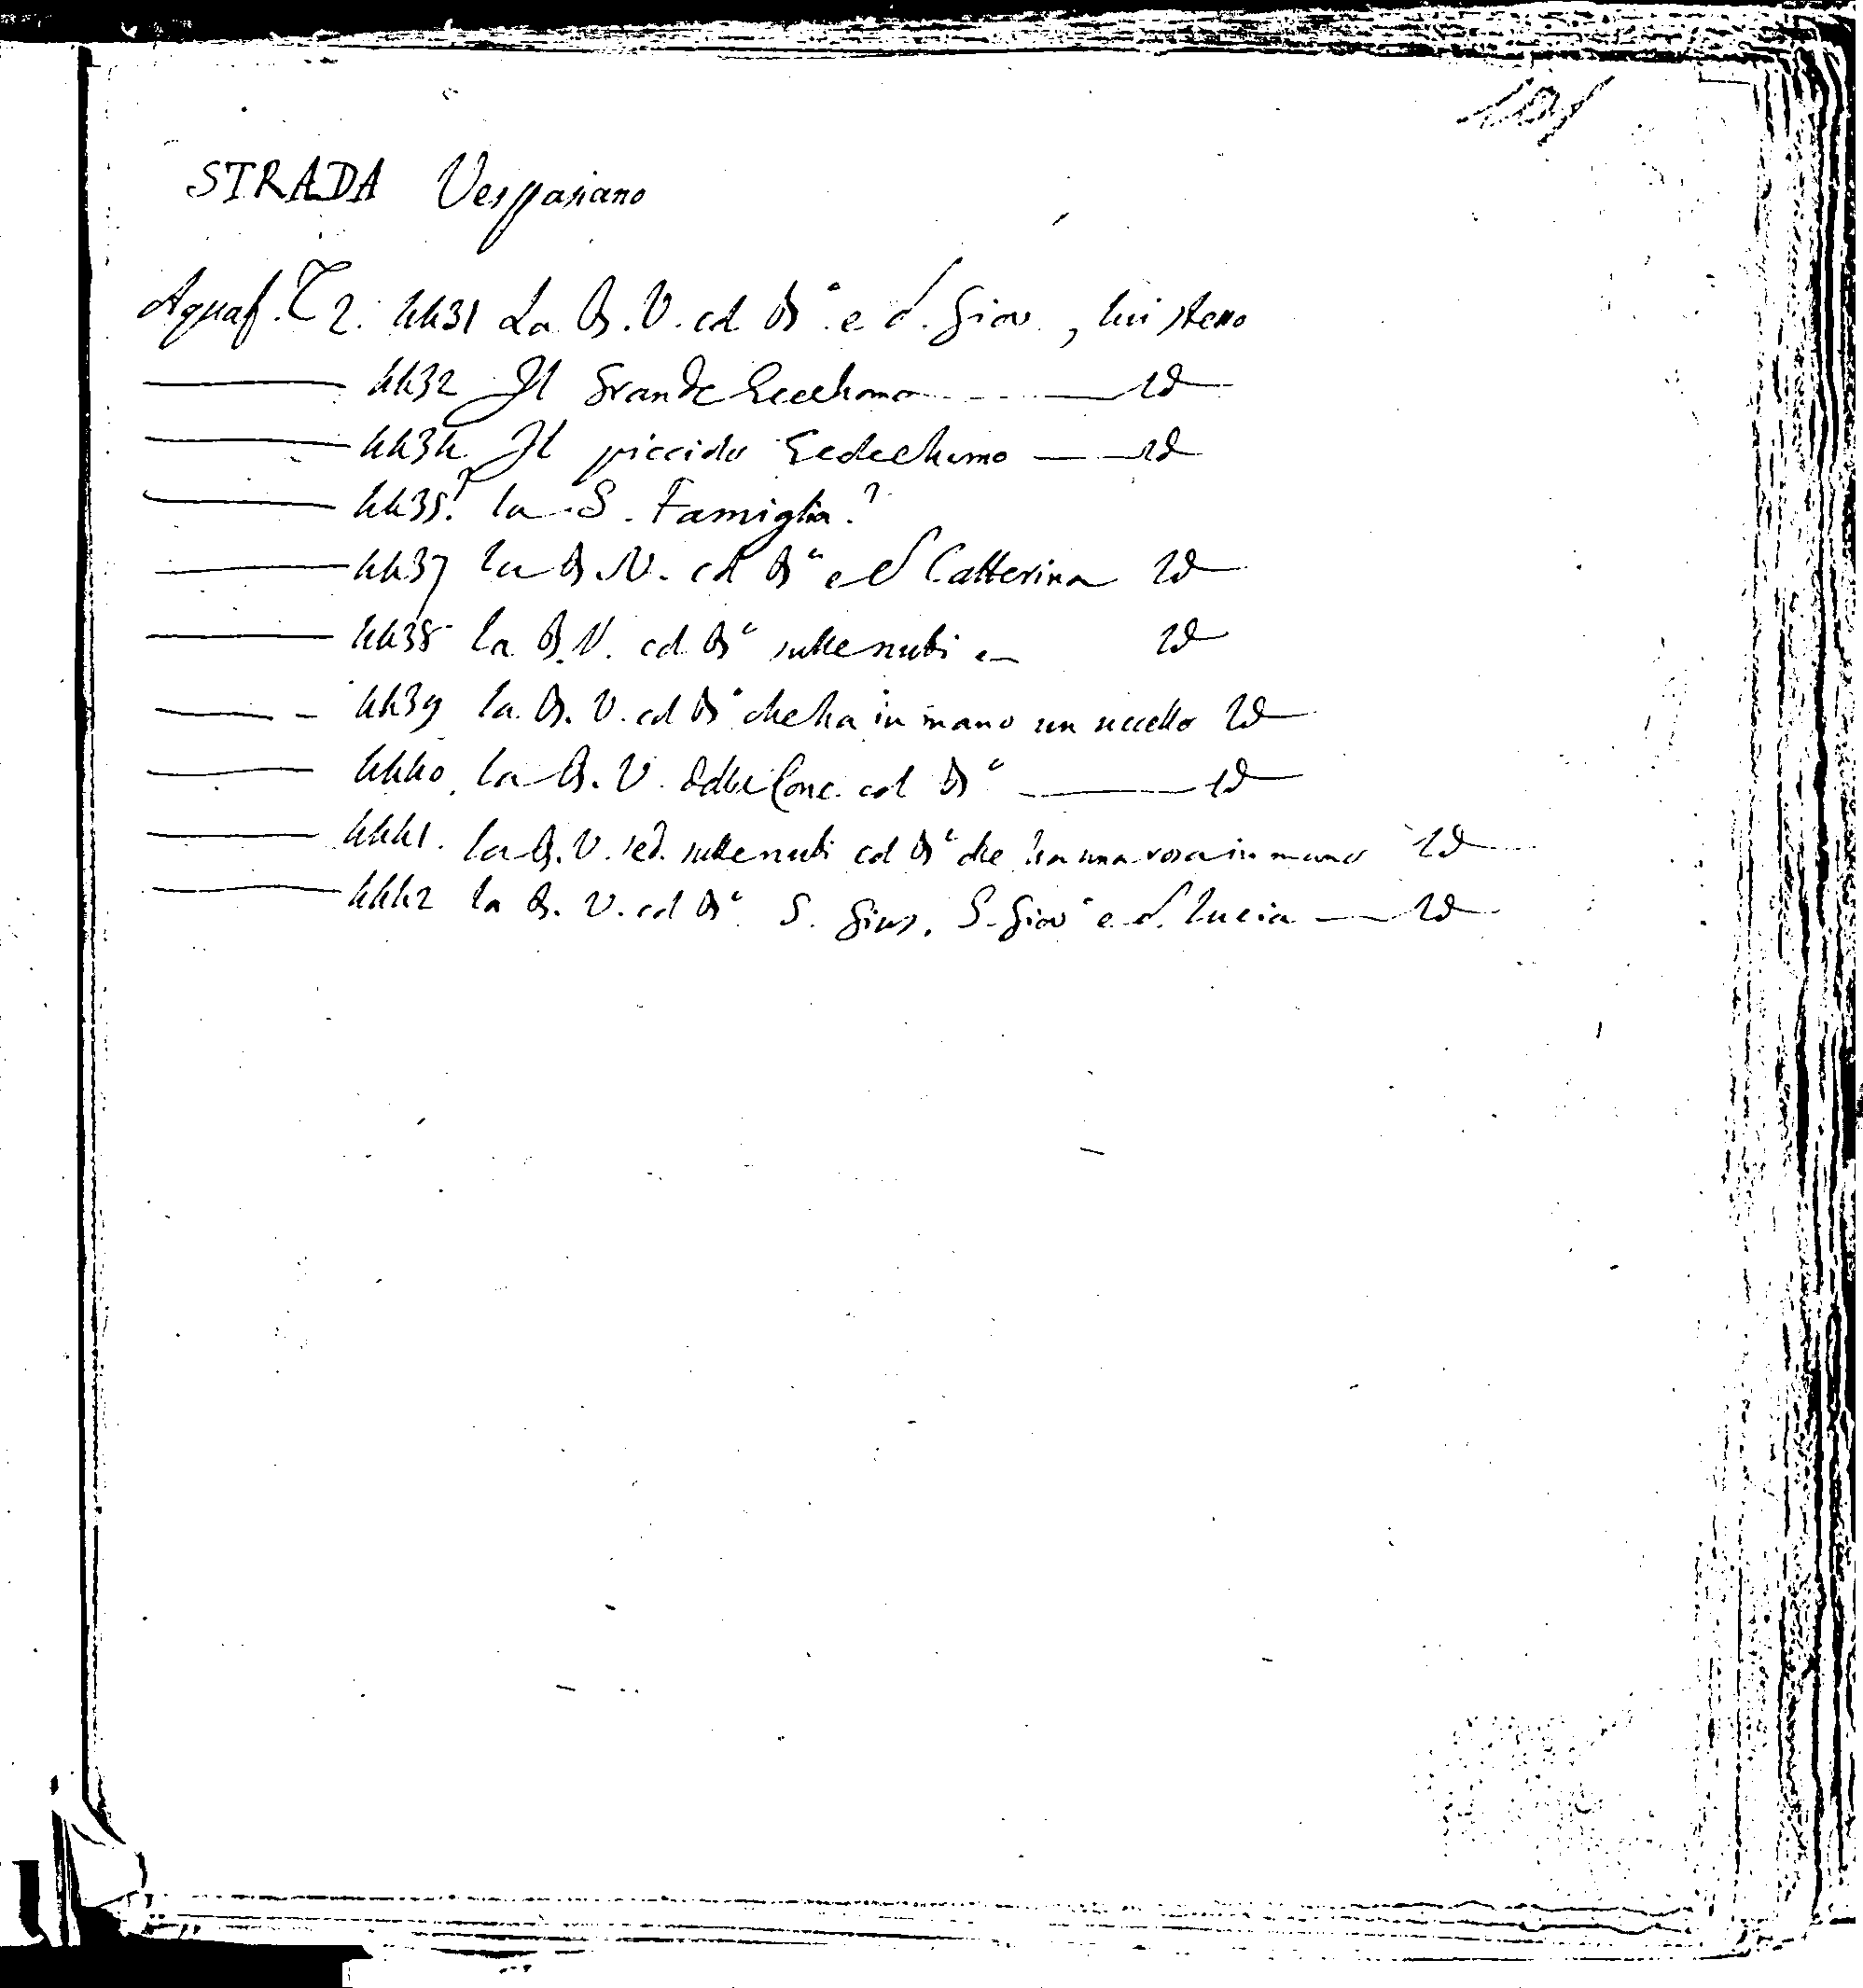 101
STRADA Vespasiano
Aquaf. T 2. 4431 La B. V. col Bº e S. Giov., lui stesso
4432 Il Grande Eccehomo id
4434 Il piccolo Eccehomo id
4435? la S. Famiglia?
4437 la B. V. col Bº e S Catterina id
4438 la B. V. col Bº sulle nubi id
4439 la B. V. col Bº che ha in mano un uccello id
4440 la B. V. della Conc. col Bº id
4441. la B. V. sed. sulle nubi col Bº che ha una rosa in mano id
4442 la B. V. col Bº S. Gius. S. Giovº e S. Lucia id